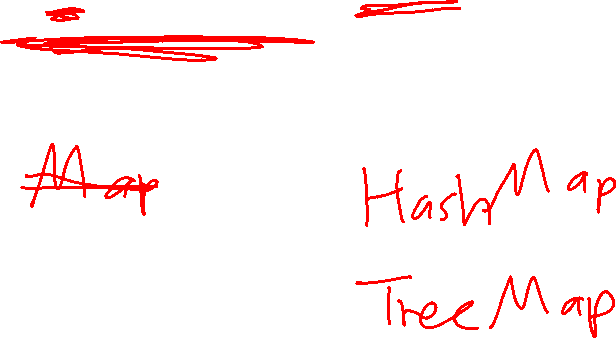 Map
HashMap
TreeMap